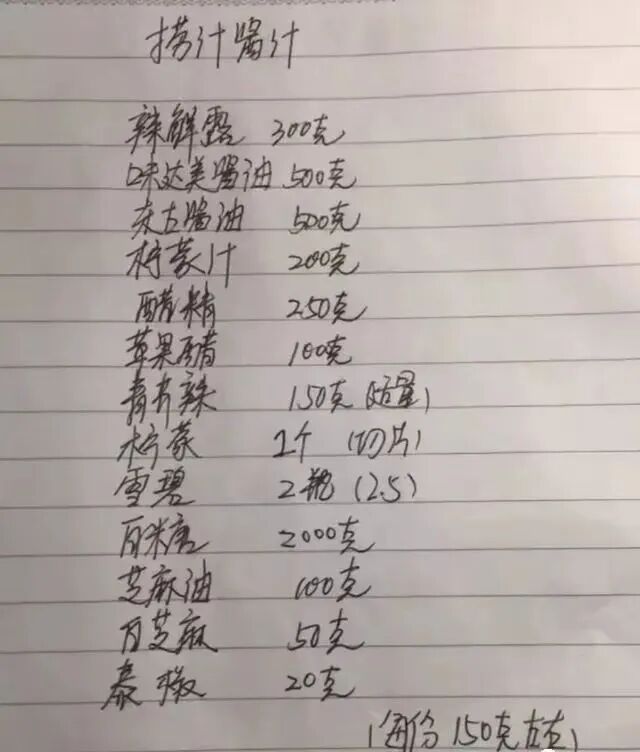 捞汁酱汁
辣鲜露 300克
味达美酱油 500克
东古酱油 500克
柠檬汁 200克
醋精 250克
苹果醋 100克
青芥辣 150克(适量)
柠檬 2个 (切片)
雪碧 2瓶 (2.5)
白米唐 2000克
芝麻油 100克
白芝麻 50克
泰椒 20克
(每份 150克左右)